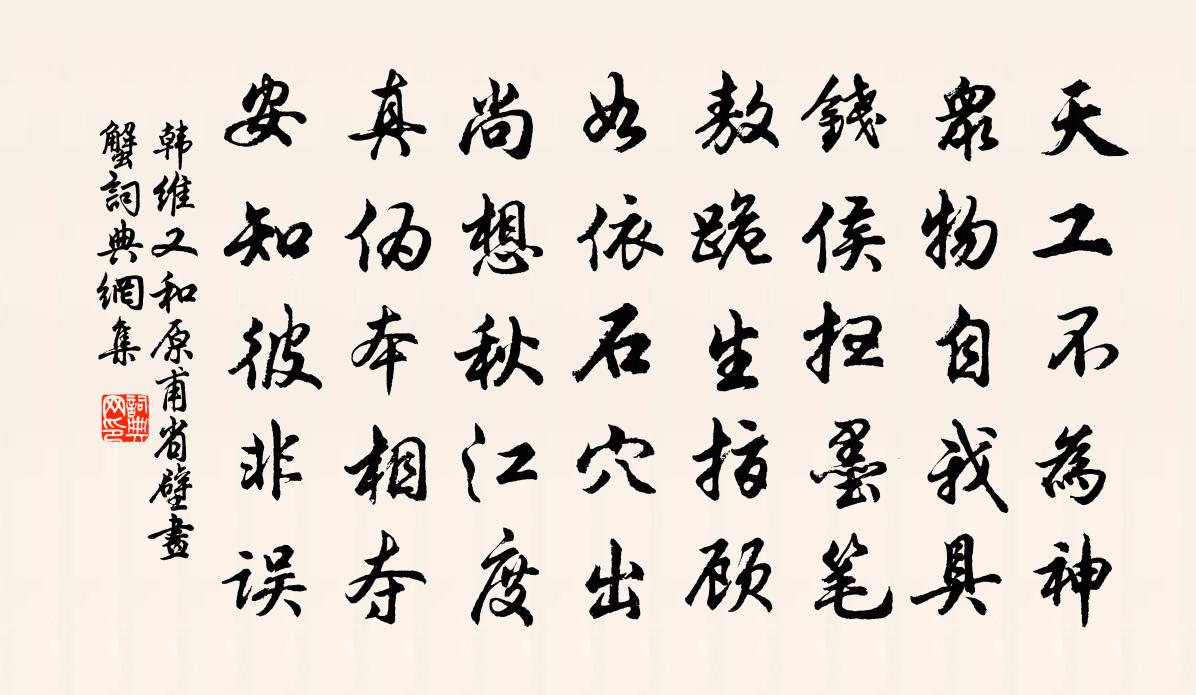 天工不為神
眾物自我具
錢侯扫墨笔
敖跪生指顾
如依石穴出
尚想秋江度
真伪本相夺
安知彼非误
韩维又和原甫省壁畫
蟹詞典網集
詞典网印